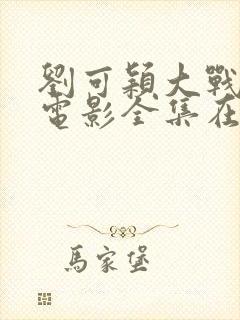 劉可穎大戰
電影全集在
馬家堡